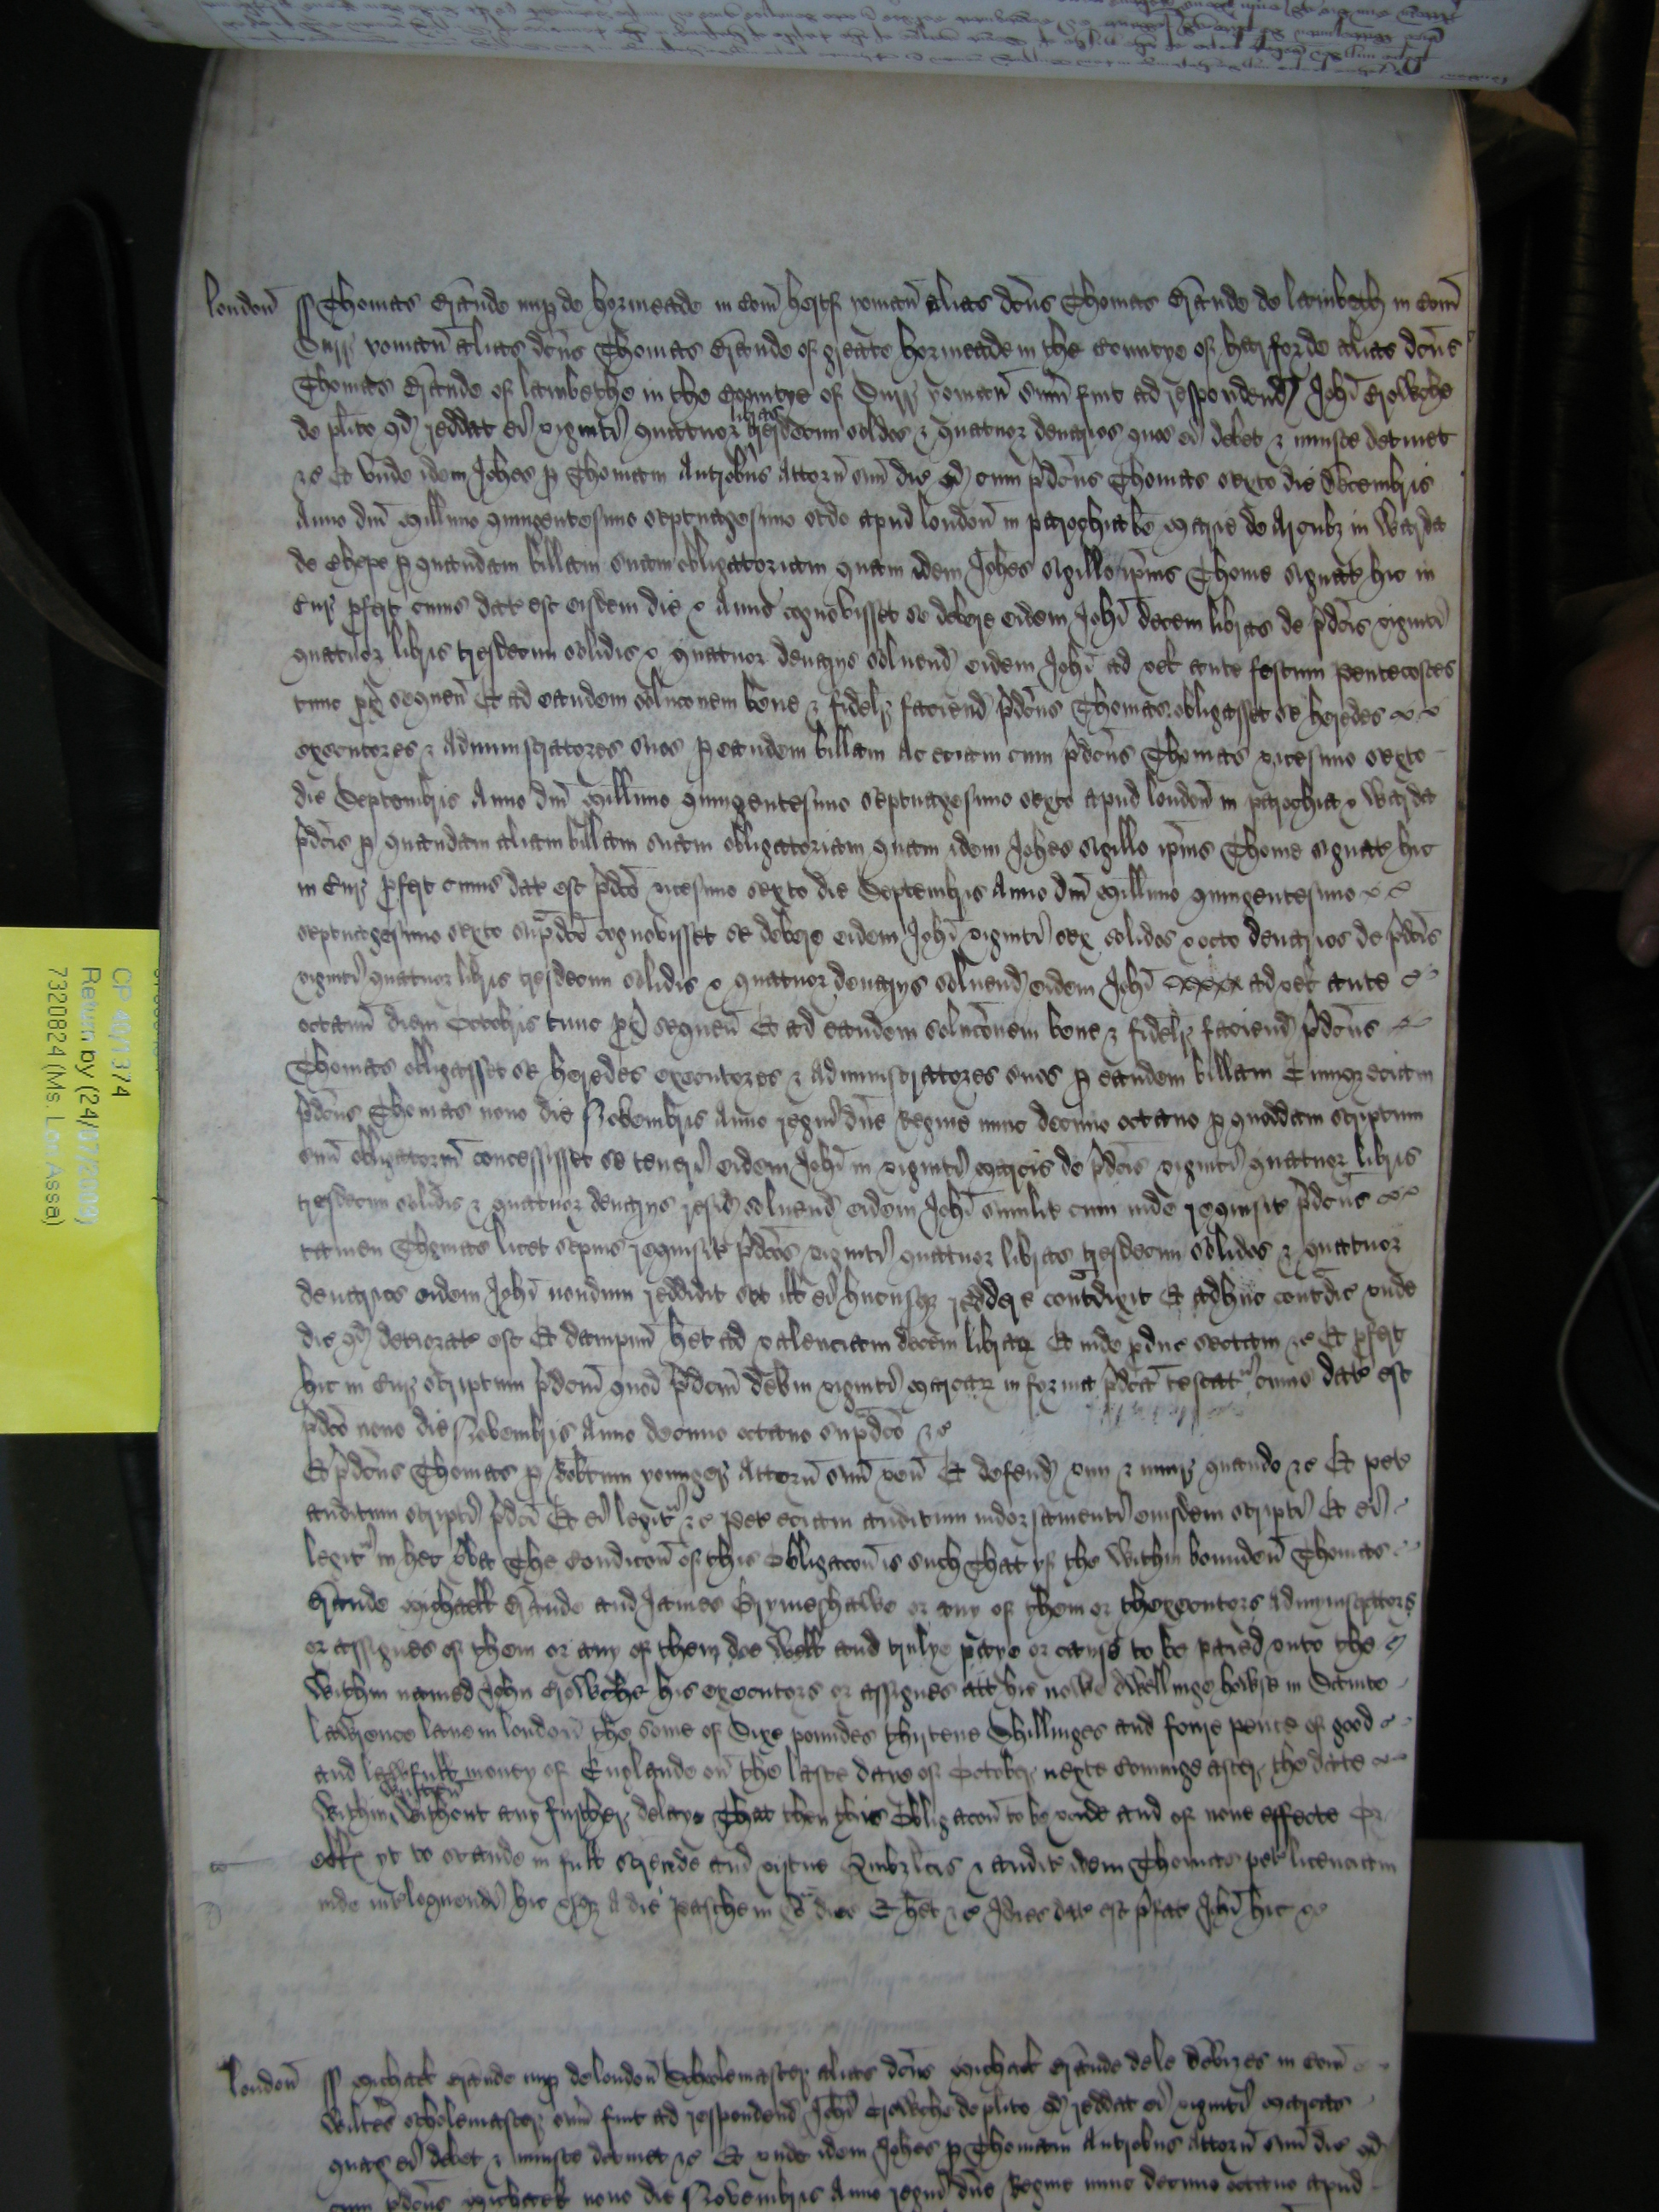 london ss Thomas Crande nup de hormeade in Com hertf yoman alias dcus Thomas Crande de lambeth in Com
Surr yoman alias dcus Thomas Crande of greate hormeade in the Countye of harforde alias dcus
Thomas Crande of lambethe in the Countye of Surr yoman sum fuit ad respondend Johi Crowche
de plito qd reddat ei viginti quatuor libras tresdecim solidos & quatuor denarios quos ei debet & iniuste detinet
&c Et unde idem Johes p Thomam Antrobus Attorn suu dic qd cum pdcus Thomas sexto die decembris
Anno dni Millimo quingentesimo septuagesimo scdo apud london in parochia be Marie de Arcubz in Warda
de Chepe p quandam billam suam obligatoriam quam idem Johes sigillo ipius Thome signat hic in
Cur pfert cuius dat est eisdem die & Anno cognovisset se debere eidem Johi decem libras de pdcis viginti
quatuor libris tresdecim solidis & quatuor denariis solvend eidem Johi ad vel ante festum Pentecostes
tunc px sequen Et ad eandem solucionem bene & fidelr faciend pdcus Thomas obligasset se heredes
executores & Administratores suos p eandem billam Ac eciam cum pdcus Thomas vicesimo sexto
die Septembris Anno dni Millimo quingentesimo septuagesimo sexto apud london in parochia & Warda
pdcis p quandam aliam billam suam obligatoriam quam idem Johes sigillo ipius Thome signat hic
in Cur pfert cuius dat est pdco vicesimo sexto die Septembris Anno dni Millimo quingentesimo
septuagesimo sexto supdco cognovisset se debere eidem Johi viginti sex solidos & octo denarios de pdcis
viginti quatuor libris tresdecim solidis & quatuor denariis solvend eidem Johi ad vel ante
octavu diem Octobris tunc px sequen Et ad eandem solucionem bene & fidelr faciend pdcus
Thomas obligasset se heredes executores & Administratores suos p eandem billam Cumqz eciam
pdcus Thomas nono die Novembris Anno regni dne Regine nunc decimo octavo p quoddam scriptum
suu obligatoriu concessisset se teneri eidem Johi in viginti marcis de pdcis viginti quatuor libris
tresdecim solidis & quatuor denariis resid solvend eidem Johi similit cum inde requisit pdcus
tamen Thomas licet sepius requisit pdcas viginti quatuor libras tresdecim solidos & quatuor
denarios eidem Johi nondum reddidit set ill ei hucusqz reddere contradixit Et adhuc contradic unde
dic qd deteriorat est Et dampnu het ad valenciam decem librar Et inde pduc sectam &c Et pfert
hic in Cur scriptum pdcm quod pdcm debm viginti marcar in forma pdca testatr cuius dat est
pdco nono die Novembris Anno decimo octavo supdco &c
Et pdcus Thomas p Robtum younger Attorn suu ven Et defend vim & iniur quando &c Et pet
auditum scripti pdci Et ei legitr &c Pet eciam auditum indorsamenti eiusdem scripti Et ei
legitr in hec vba The Condicon of this Obligacon is such That yf the within bounden Thomas
Crande Michaell Crande and James Grymeshawe or any of them or thexecutors Administrators
or assignes of them or any of them doe Well and trulye paye or cause to be paied unto the
within named John Crowche his executors or assignes att his nowe dwellinge howse in Sainte
lawrence lane in london the some of Sixe poundes thirtene Shillinges and foure pence of good
and lawfull money of Englande on the laste daie of October nexte Cominge after the date
within written without any further delaye That then this Obligacon to be voide and of none effecte Or
ells yt to stande in full strengthe and vertue Quibz lcis & audit idem Thomas pet licenciam
inde inteloquendi hic usqz A die Pasche in dies Et het &c Idies dat est pfat Johi hic &c
london ss Michaell Crande nup de london Scholemaster alias dcus Michaell Crande dele devizes in Com
Wiltes Scholemaster sum fuit ad respondend Johi Crowche de plito qd reddat ei viginti marcas
quas ei debet & iniuste detinet &c Et unde idem Johes p Thomam Antrobus Attorn suu dic qd
cum pdcus Michaell nono die Novembris Anno regni dne Regine nunc decimo octavo apud
CP 40/1374
Return by (24/07/2009)
7320824 (Ms. Lori Assa)